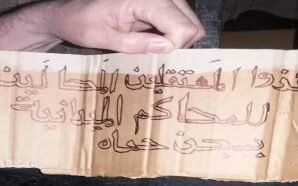 المعتقلين المحالين
للمحاكم الميدانية
بسجن حماه